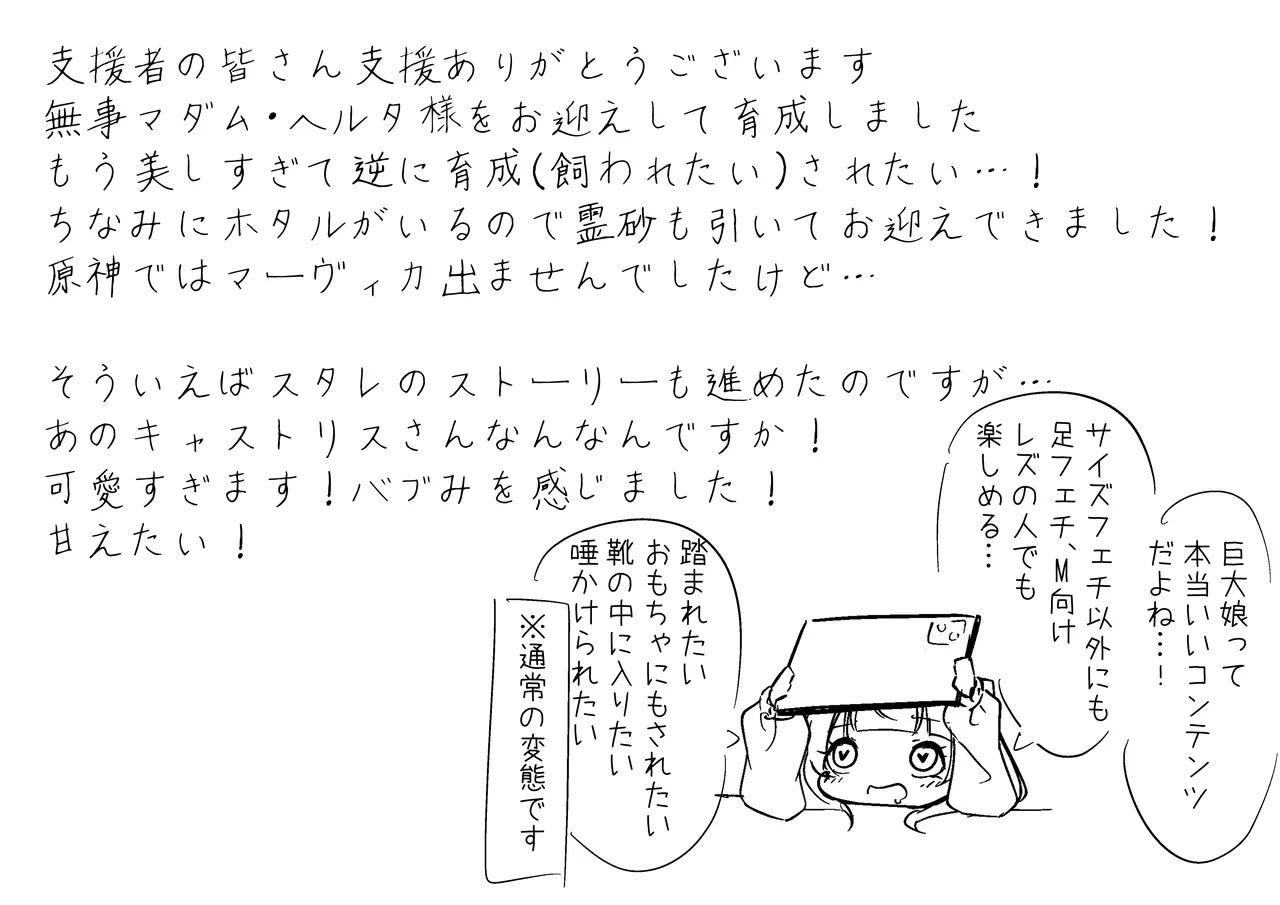 支援者の皆さん支援ありがとうございます
無事マダム・ヘルタ様をお迎えして育成しました
もう美しすぎて逆に育成(飼われたい)されたい…！
ちなみにホタルがいるので霊砂も引いてお迎えできました！
原神ではマーヴィカ出ませんでしたけど…
そういえばスタレのストーリーも進めたのですが…
あのキャストリスさんなんなんですか！
可愛すぎます！バブみを感じました！
甘えたい！
巨大娘って
本当いいコンテンツ
だよね…！
サイズフェチ以外にも
足フェチ、M向け
レズの人でも
楽しめる…
踏まれたい
おもちゃにもされたい
靴の中に入りたい
唾かけられたい
※通常の変態です